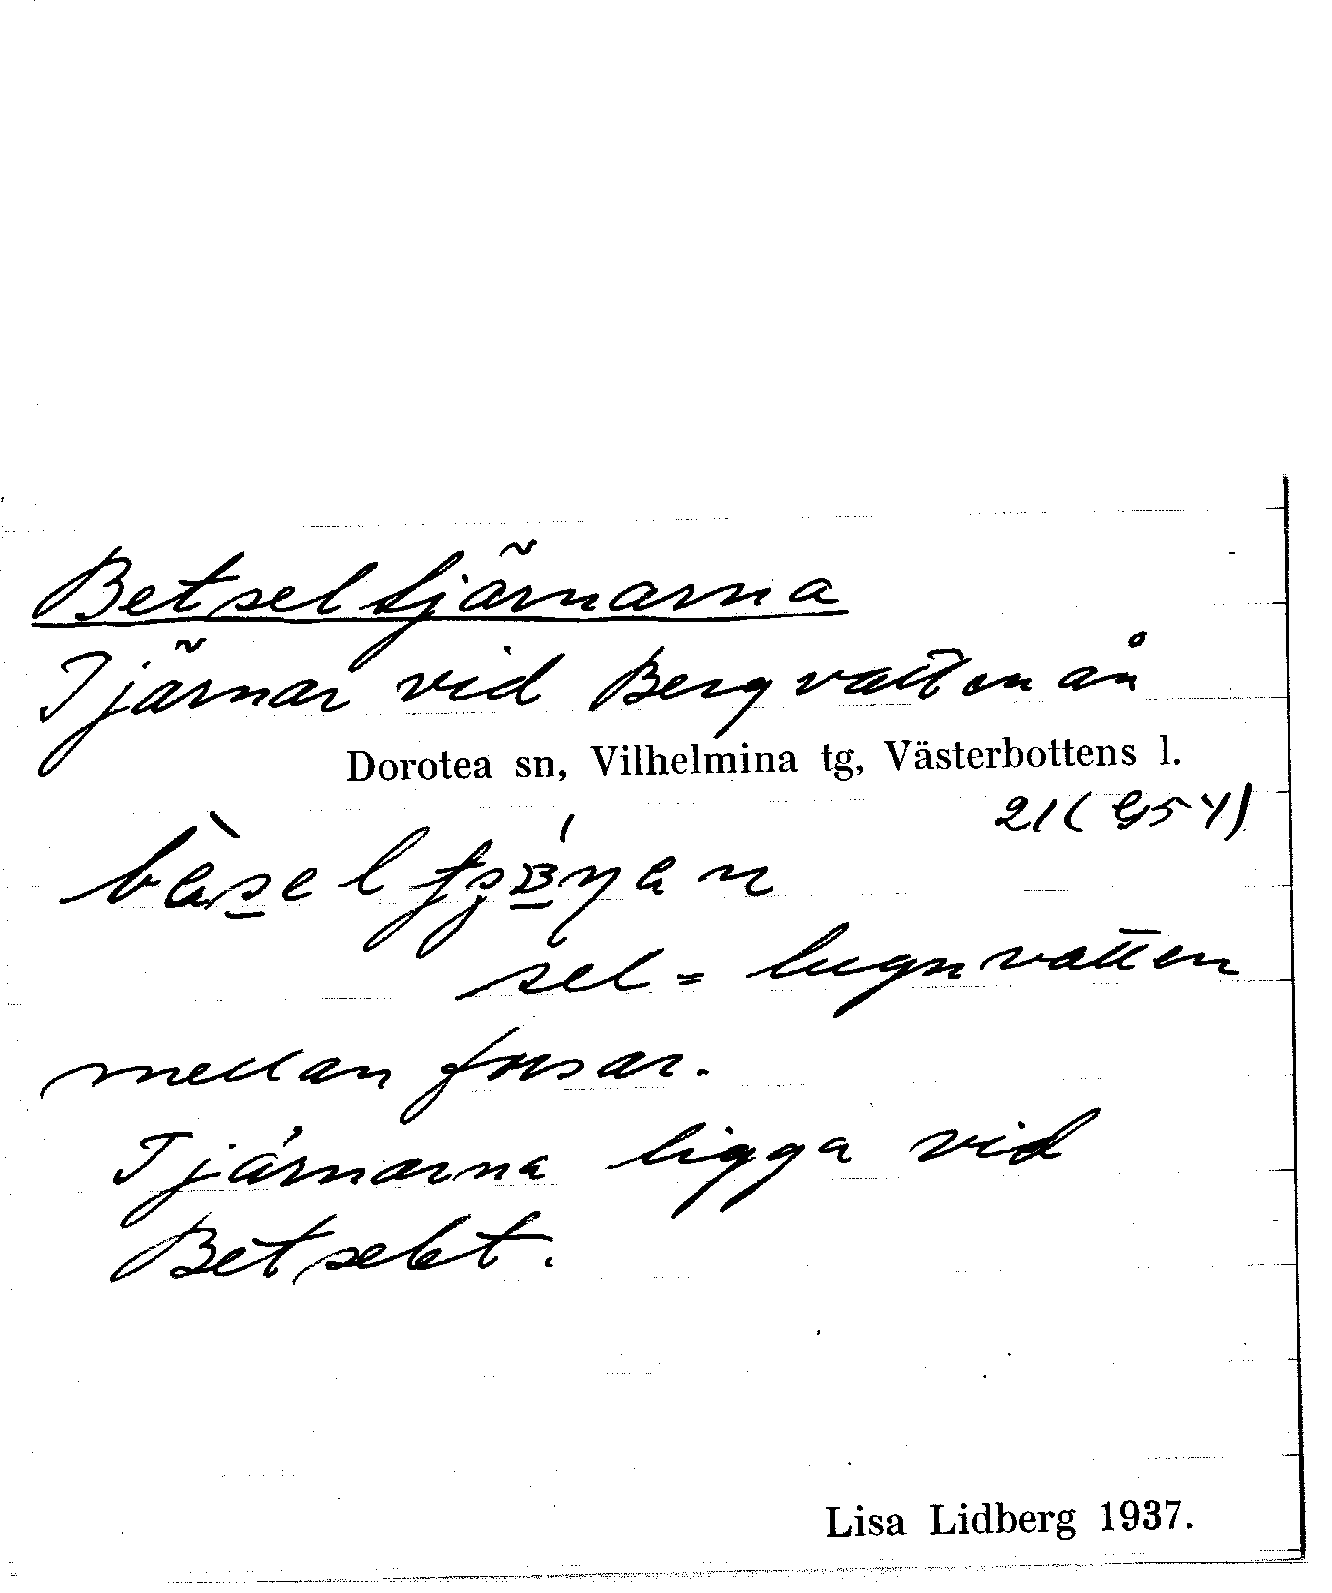 Betseltjärnarna
Tjärnar vid Bergvattenån
Dorotea sn, Vilhelmina tg, Västerbottens l.
21 (G54)
sel = lugnvatten
mellan forsar.
Tjärnarna ligga vid
Betselet.
Lisa Lidberg 1937.